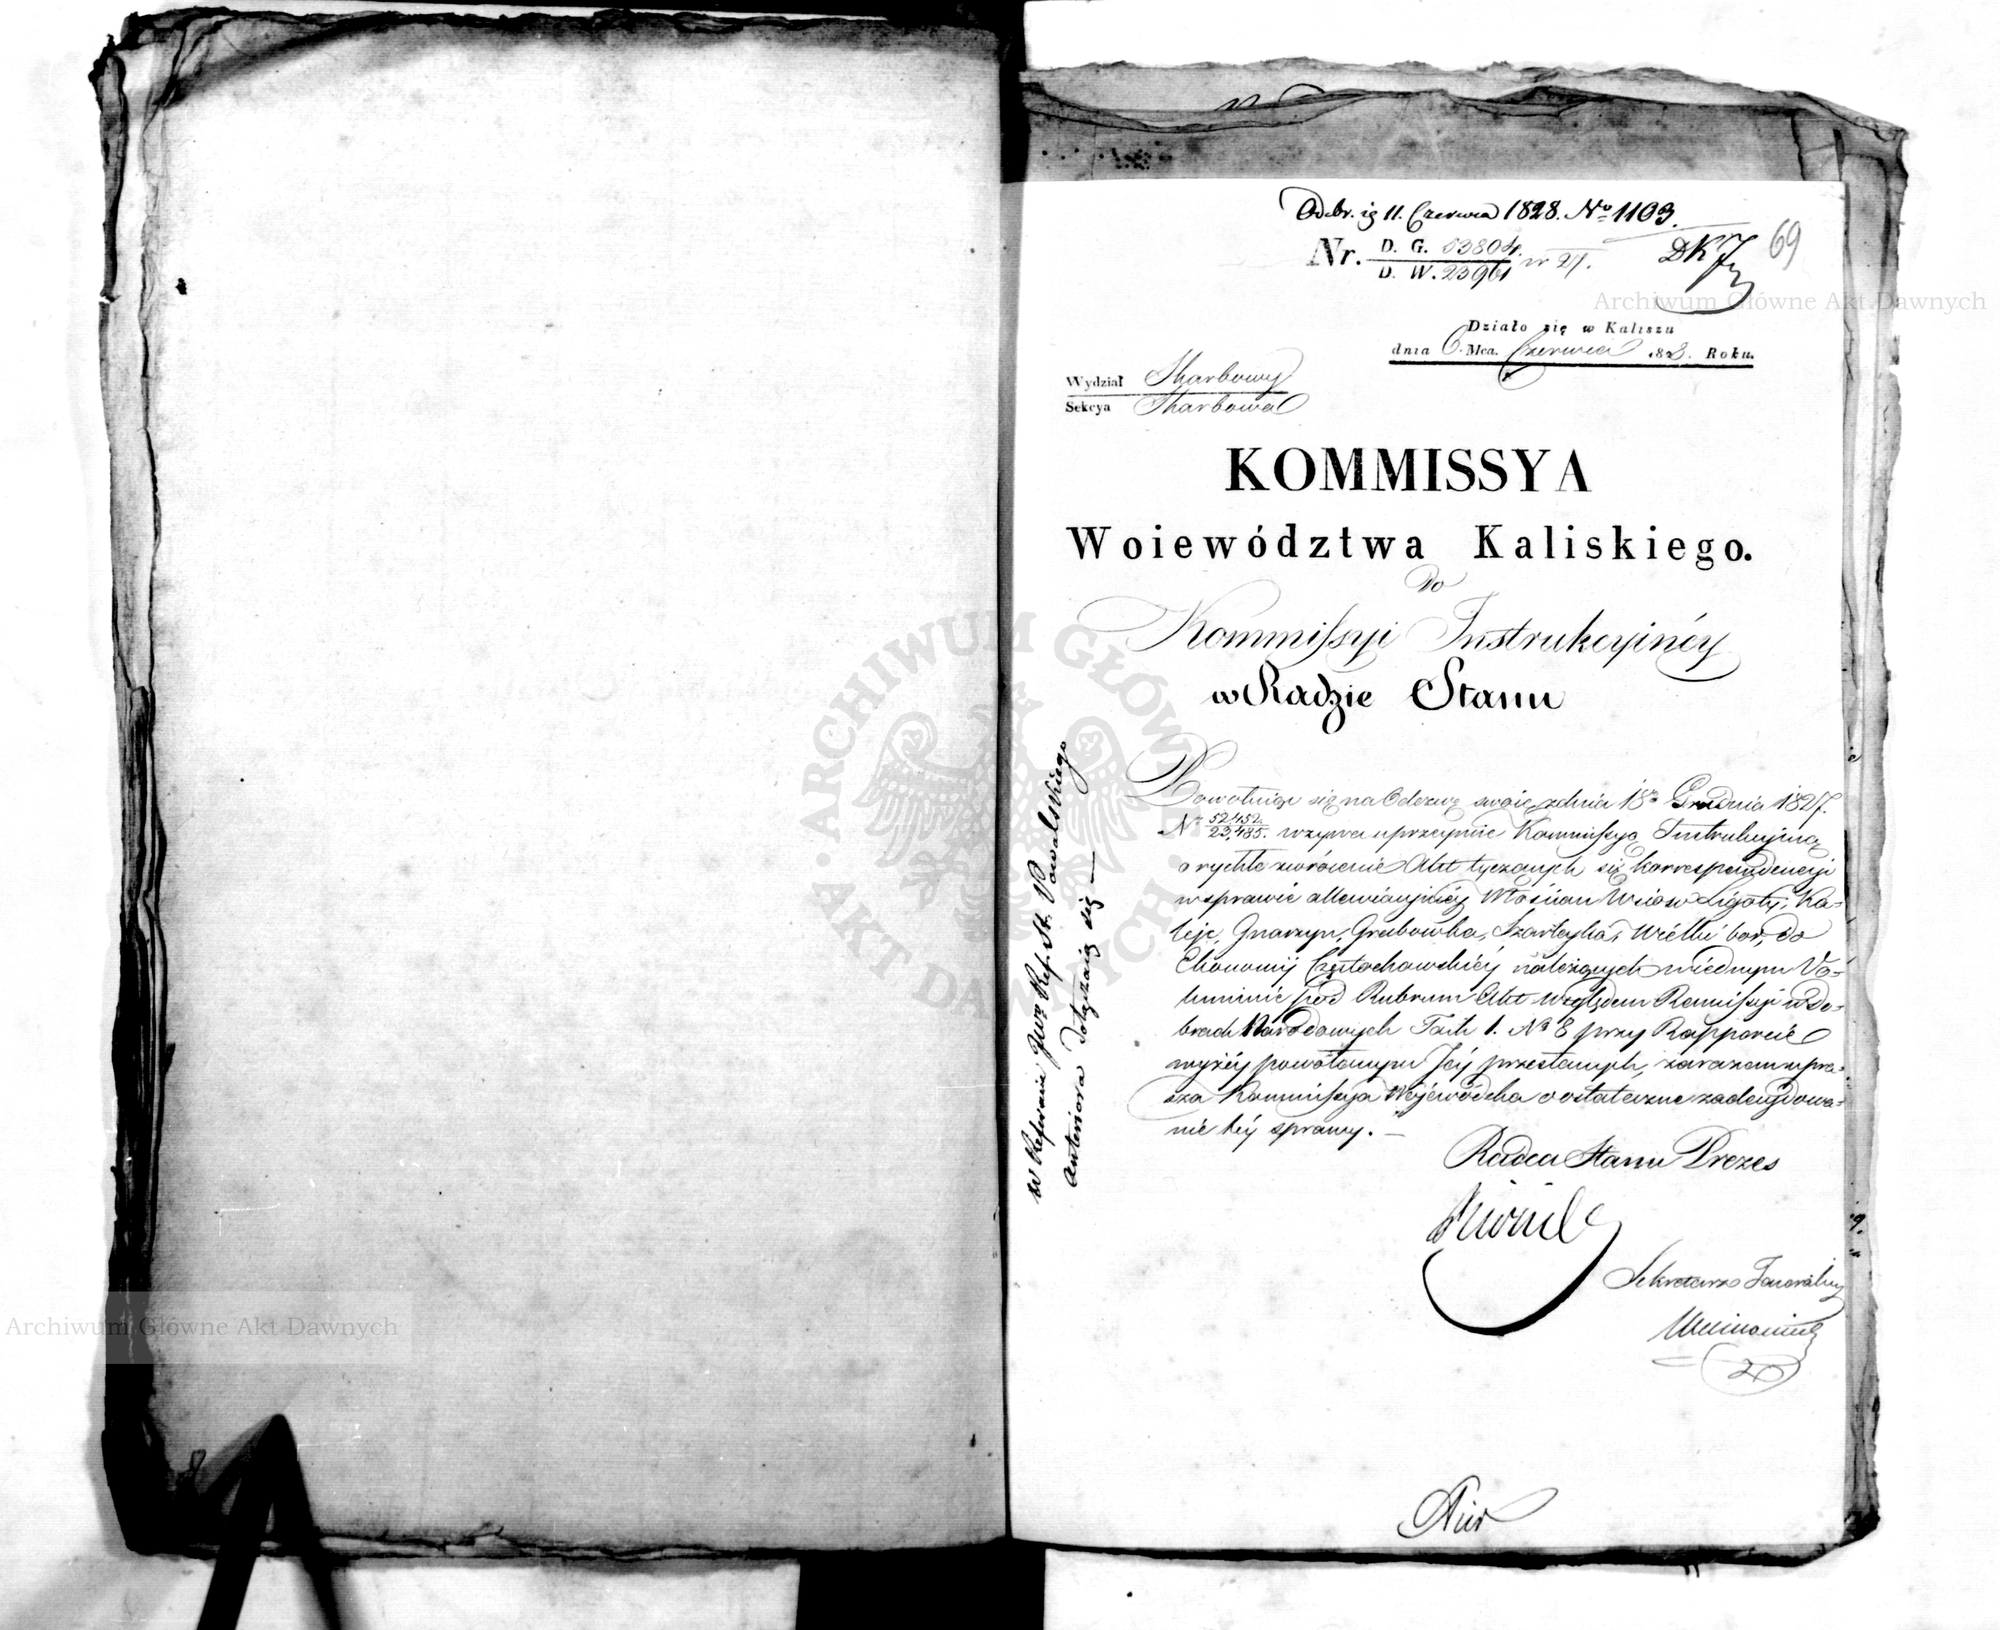 Odebr. ig 11. Czerwca 1828. No 1103.
69
Nr. D. G. 53804.
D. W. 23961
DK
Działo się w Kaliszu
dnia 6. Mca. Czerwca 1828. Roku.
Wydział Skarbowy
Sekcya Skarbowa
KOMMISSYA
Woiewództwa Kaliskiego.
Do
Kommissyi Instrukcyinéy
w Radzie Stanu
Powołuiąc się na Odezwę swoię z dnia 18go Grudnia 1827.
No 52,452/23,485. wzywa uprzeymie Kommissyą Instrukcyiną
o rychłe zwrócenie Akt tyczących się korrespondencyi
w sprawie allewiacyinéy Włościan Wsiow Ligoty, Ka-
leje, Gnaszyn, Grabowka, Szarleyka, Wielki bor, do
Ekonomij Częstochowskiéy należących w iednym Vo-
luminie pod Rubrum Akt względem Remissyi w Do-
brach Narodowych Fach 1. No 8 przy Rapporcie
wyżéy powołanym Jéy przesłanych, zarazem upra-
sza Kommissya Wojewódzka o ostateczne zadecydowa-
nie téy sprawy. —
Radca Stanu Prezes
Sekretarz Jeneralny
w Referacie JWgo Ref. St. Kowalskiego
Anteriora dotyczaią się —
ARCHIWUM GŁÓWNE AKT DAWNYCH
Archiwum Główne Akt Dawnych
Archiwum Główne Akt Dawnych